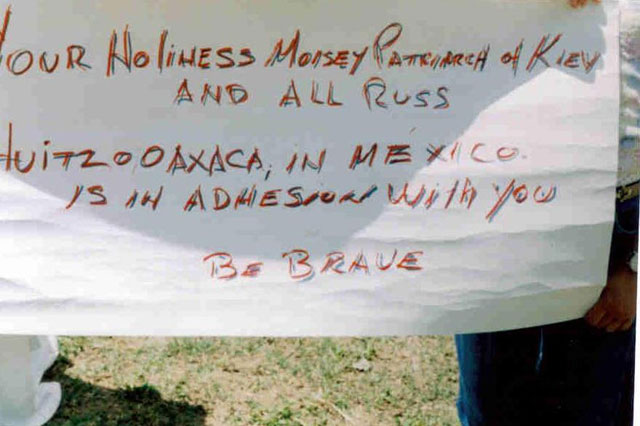 YOUR HOLINESS MOISEY PATRIARCH of KIEV
AND ALL RUSS
HUITZO OAXACA, IN MÉXICO.
IS IN ADHESION WITH YOU
BE BRAVE